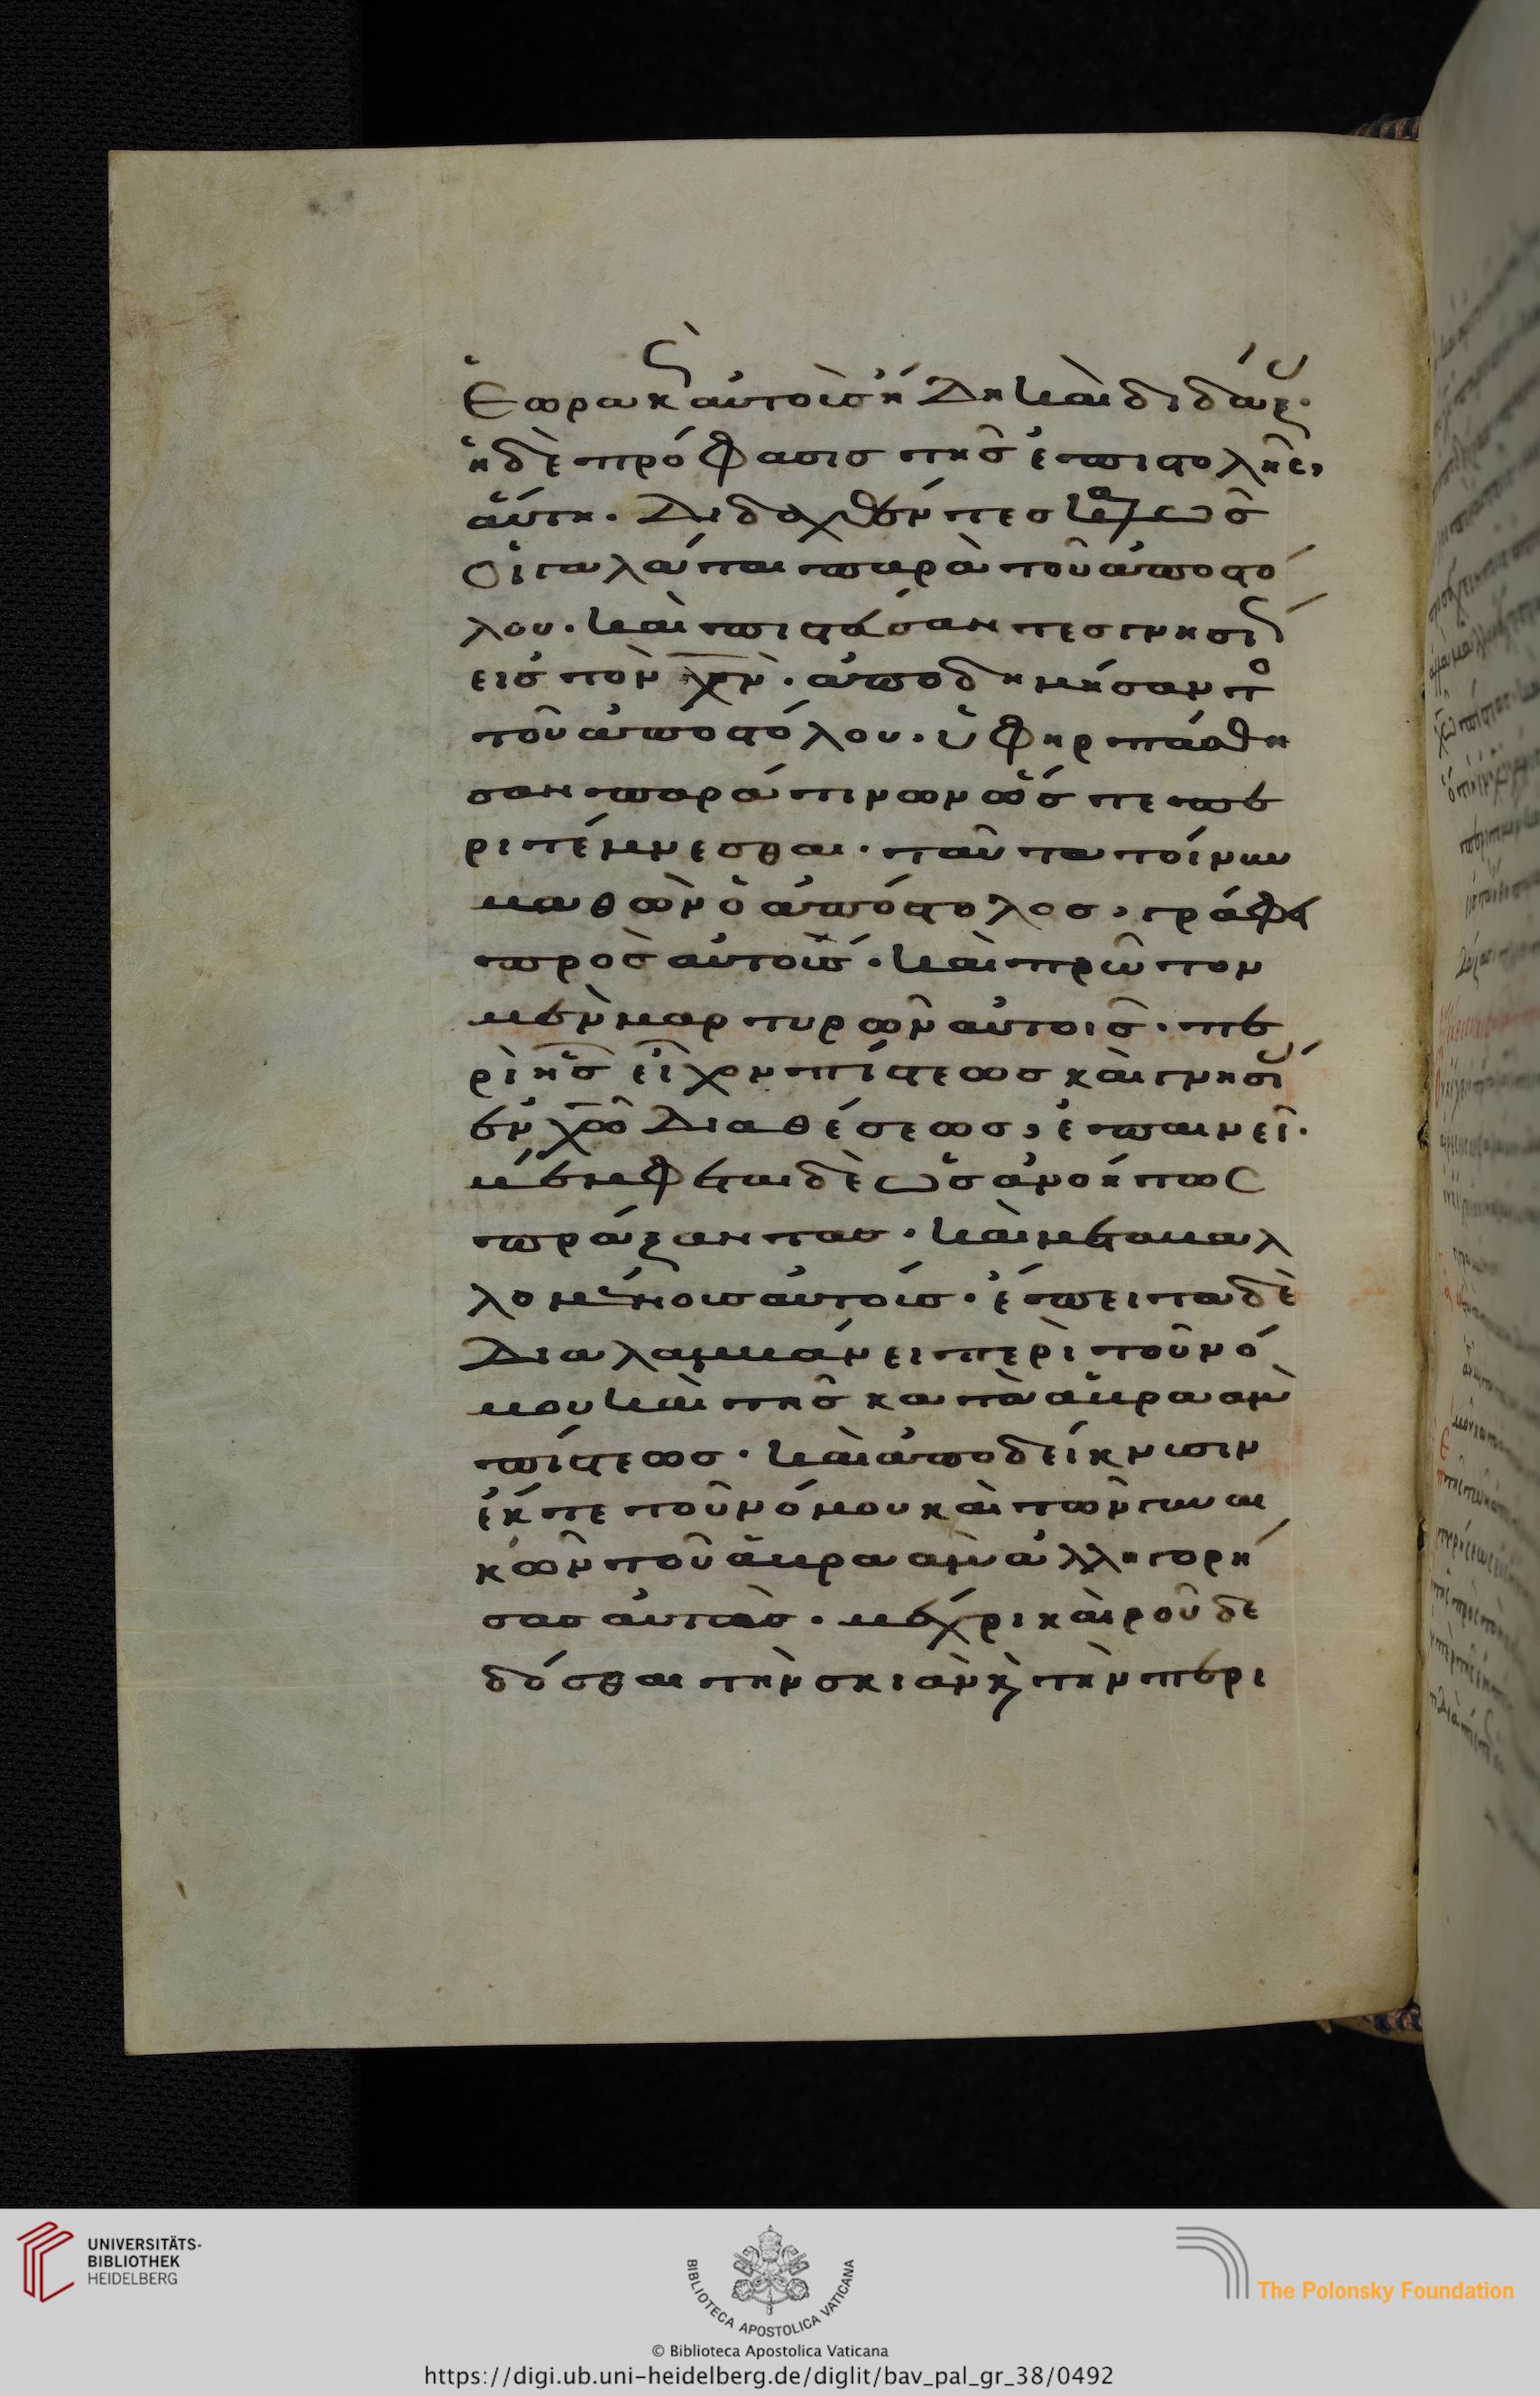 ἑωρακὼς αὐτοὺς ἤδη καὶ διδάξας·
ἡ δὲ πρόφασις τῆς ἐπιστολῆς,
αὕτη· διδαχθέντες καλῶς
οἱ γαλάται παρὰ τοῦ ἀποστό
λου· καὶ πιστεύσαντες γνησίως
εἰς τὸν χν· ἀποδημήσαντος
τοῦ ἀποστόλου· ὑφηρπάσθη
σαν παρά τινων ὥστε πε
ριτέμνεσθαι· ταῦτα τοίνυν
μαθὼν ὁ ἀπόστολος, γράφει
πρὸς αὐτούς· καὶ πρῶτον
μὲν μαρτυρῶν αὐτοῖς· πε
ρὶ ἧς εἶχον πίστεως καὶ γνησίας
ἐν χω διαθέσεως, ἐπαινεῖ·
μέμφεται δὲ ὡς ἀνοήτως
πράξαντας· καὶ μεταβαλ
λομένοις αὐτοῖς· ἔπειτα δὲ
διαλαμβάνει περὶ τοῦ νό
μου καὶ τῆς κατὰ ἀβραὰμ
πίστεως· καὶ ἀποδείκνυσιν
ἔκ τε τοῦ νόμου καὶ τῶν γυναι
κῶν τοῦ ἀβραὰμ ἀλληγορή
σας αὐτάς· μέχρι καιροῦ δε
δόσθαι τὴν σκιὰν κ τὴν περι
UNIVERSITÄTS-
BIBLIOTHEK
HEIDELBERG
BIBLIOTECA APOSTOLICA VATICANA
The Polonsky Foundation
© Biblioteca Apostolica Vaticana
https://digi.ub.uni-heidelberg.de/diglit/bav_pal_gr_38/0492